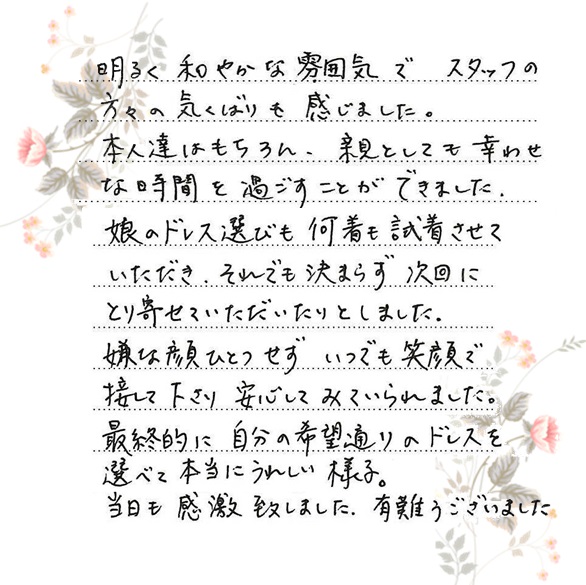 明るく和やかな雰囲気で スタッフの
方々の気くばりも 感じました。
本人達はもちろん、親としても幸わせ
な時間を過ごすことができました.
娘のドレス選びも何着も試着させて
いただき.それでも決まらず次回に
とり寄せていただいたりとしました.
嫌な顔ひとつせず いつでも笑顔で
接して下さり 安心してみていられました。
最終的に 自分の希望通りのドレスを
選べて本当にうれしい様子。
当日も感激致しました.有難うございました